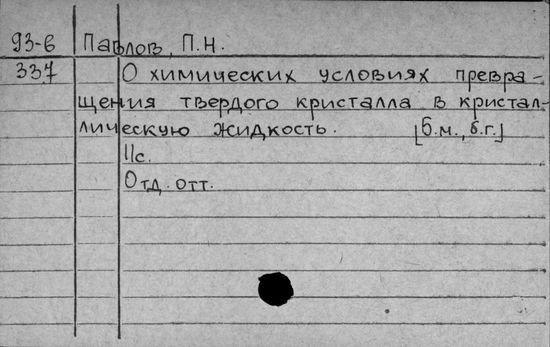 93-6 Павлов, П.Н.
337 О химических условиях превра-
щения твердого кристалла в кристал-
лическую жидкость. [б.м., б.г.]
11с.
Отд. отт.